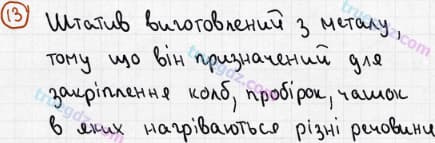 13 Штатив виготовлений з металу,
тому що він призначений для
закріплення колб, пробірок, чашок
в яких нагріваються різні речовини